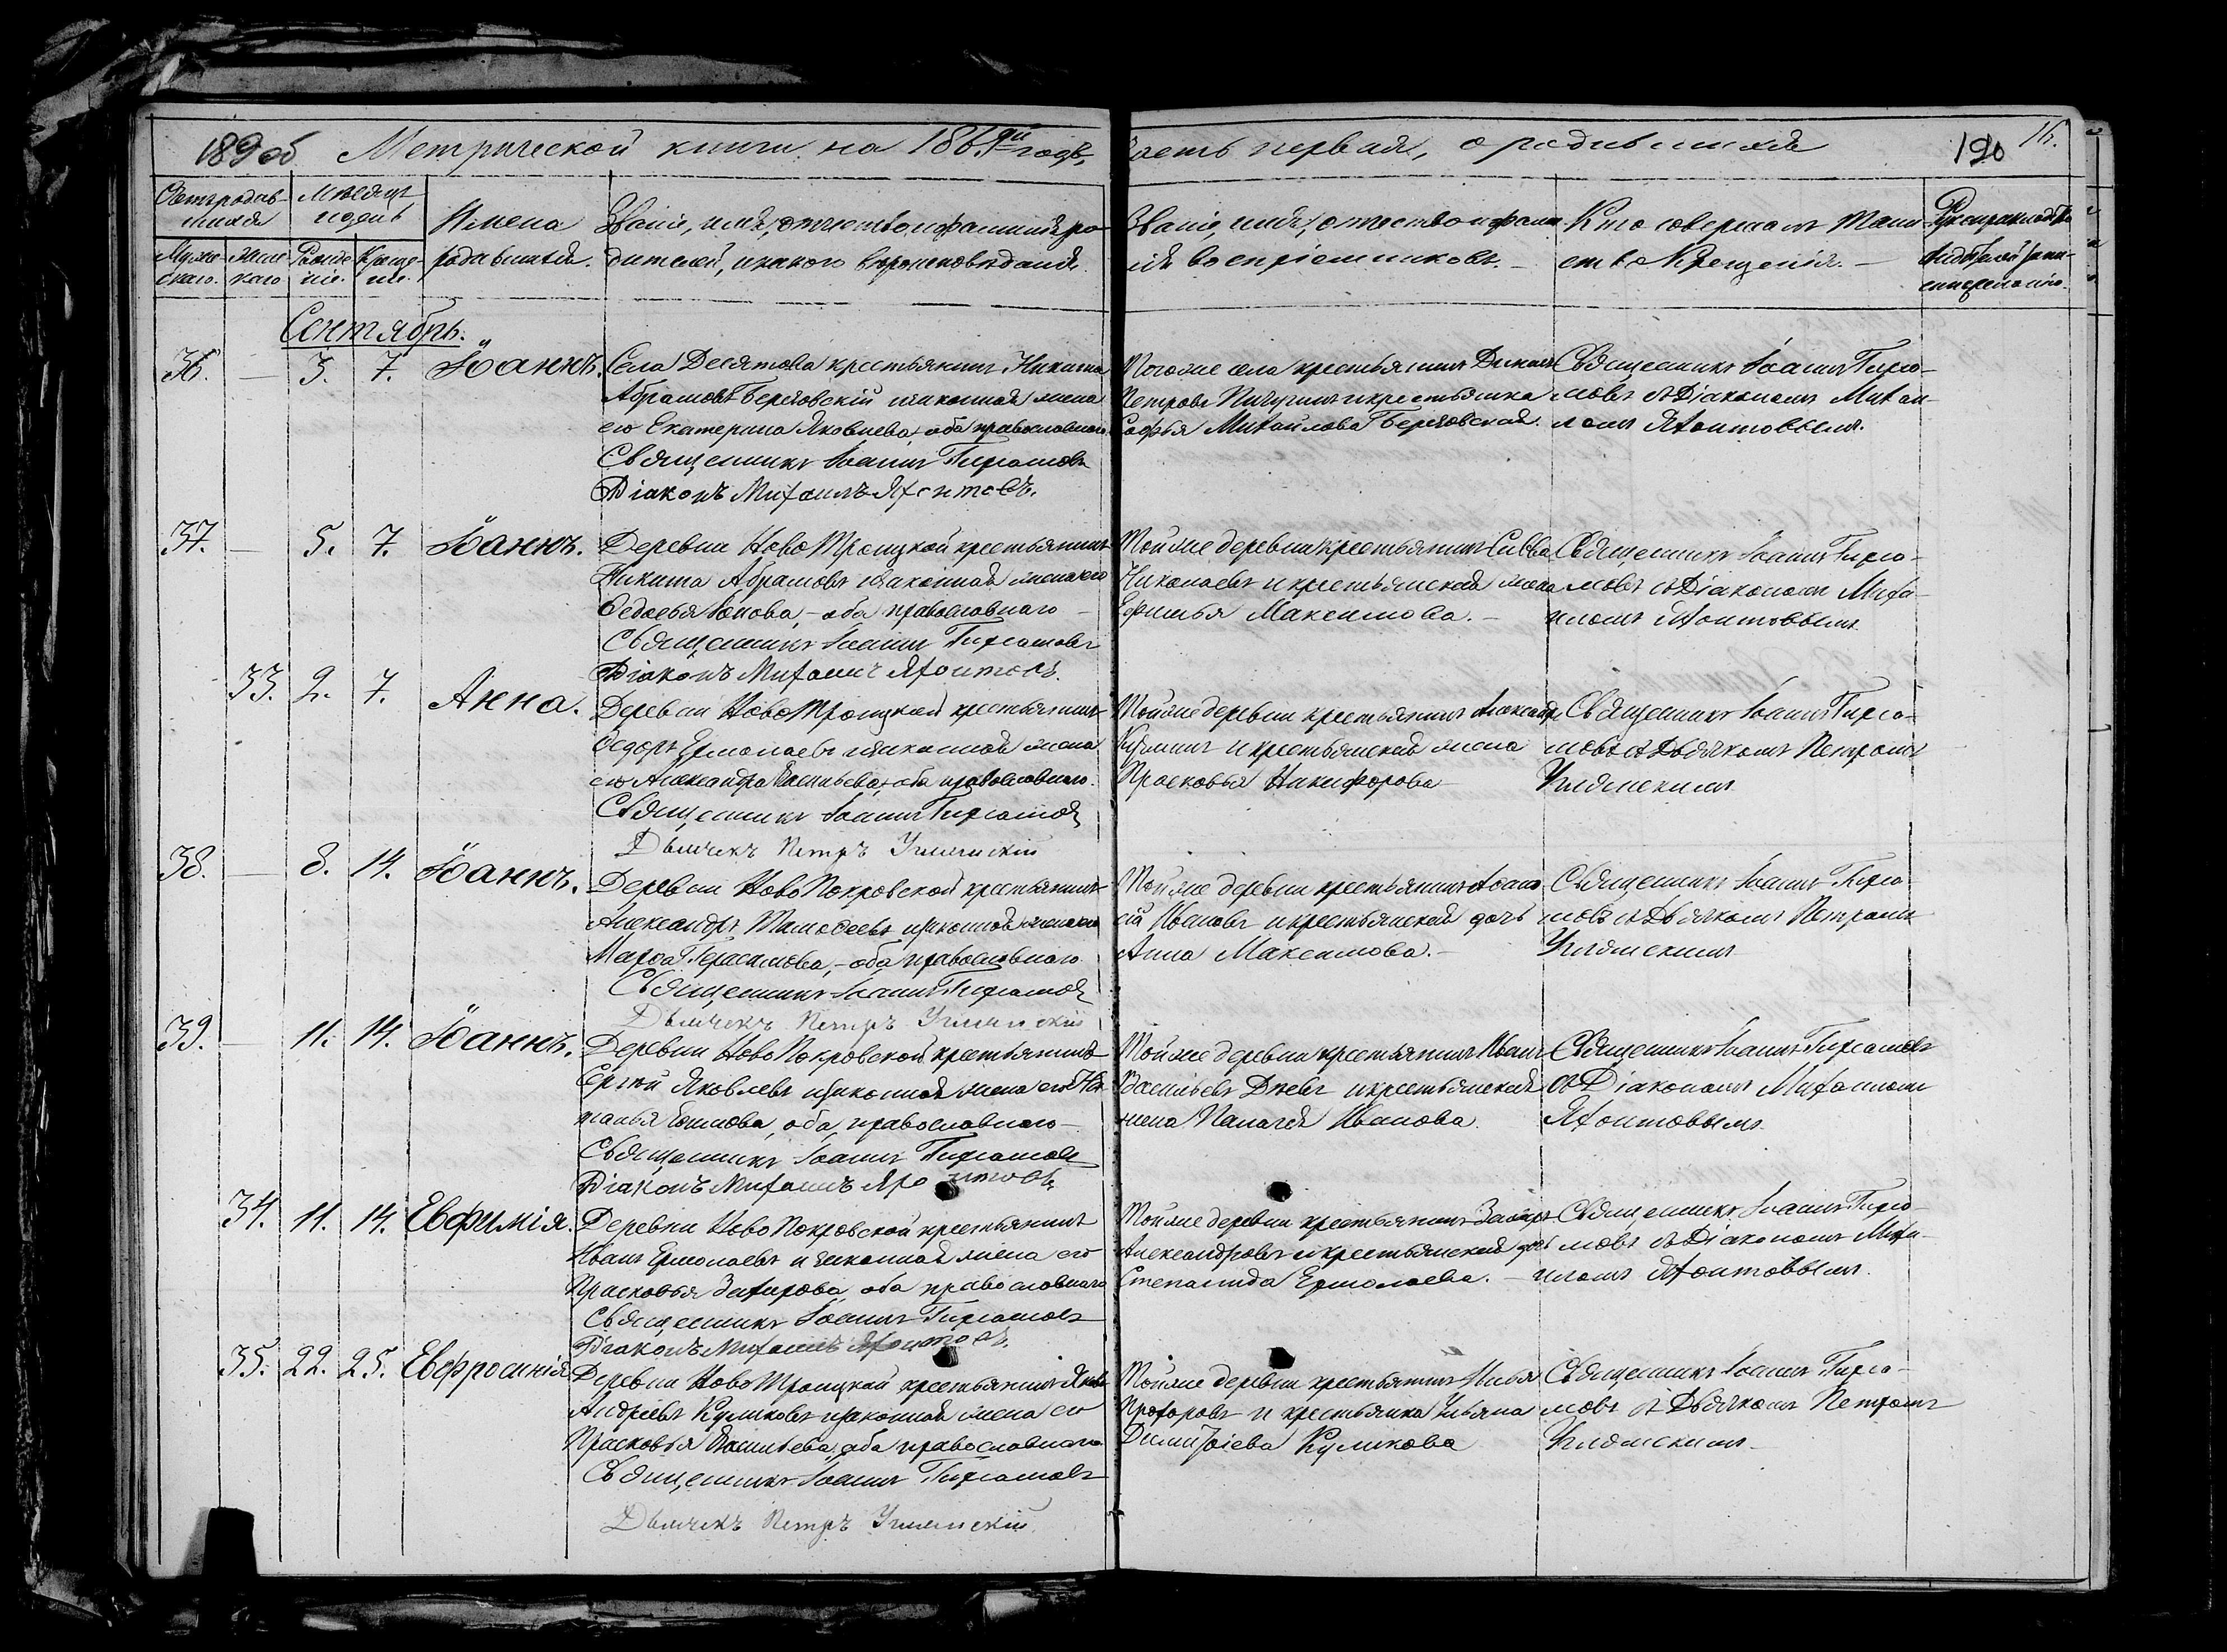 189 об Метрической книги на 1861й годъ,
Часть первая, о родившихся
190 16.
Счетъ родив-
шихся
Мѣсяцъ
и день
Имена
родившихся.
Званіе, имя, отчество и фамилія ро-
дителей, и какого вѣроисповѣданія.
Муже-
скаго.
Жен-
скаго
Рожде-
ніе.
Креще-
ніе.
Званіе, имя, отчество и фами-
лія воспріемниковъ.
Кто совершалъ таин-
ство Крещенія.
Рукоприкладство
Сентябрь.
36. — 3. 7. Іоаннъ. Села Десятова крестьянинъ Никита
Абрамовъ Береговскій и законная жена
его Екатерина Яковлева, оба православнаго
Священникъ Іоаннъ
Діаконъ Михаилъ Яхонтовъ.
Тогоже села крестьянинъ
Петровъ Пичугинъ и крестьянка
Софья Михайлова Береговская.
Священникъ Іоаннъ
мовъ съ Діакономъ Михаи-
ломъ Яхонтовымъ.
37. — 5. 7. Іоаннъ. Деревни НовоТроицкой крестьянинъ
Никита Абрамовъ и законная жена его
Ѳедосья, — оба православнаго —
Священникъ Іоаннъ
Діаконъ Михаилъ Яхонтовъ.
Тойже деревни крестьянинъ Савва
Николаевъ и крестьянская жена
Ефимья Максимова. —
Священникъ Іоаннъ
мовъ съ Діакономъ Миха-
иломъ Яхонтовымъ.
33. 2. 7. Анна. Деревни НовоТроицкой крестьянинъ
Ѳедоръ Ермолаевъ и законная жена
его Александра Васильева, оба православнаго.
Священникъ Іоаннъ
Дьячекъ Петръ
Тойже деревни крестьянинъ Александръ
Кузминъ и крестьянская жена
Прасковья Никифорова
Священникъ Іоаннъ
мовъ съ Дьячкомъ Петромъ
38. — 8. 14. Іоаннъ. Деревни НовоПокровской крестьянинъ
Александръ Тимоѳеевъ и законная жена его
Марѳа Герасимова, — оба православнаго
Священникъ Іоаннъ
Дьячекъ Петръ
Тойже деревни крестьянинъ Аѳана-
сій Ивановъ и крестьянская дочь
Анна Максимова. —
Священникъ Іоаннъ
мовъ съ Дьячкомъ Петромъ
39. — 11. 14. Іоаннъ. Деревни НовоПокровской крестьянинъ
Сергѣй Яковлевъ и законная жена его На-
талья, оба православнаго —
Священникъ Іоаннъ
Діаконъ Михаилъ Яхонтовъ
Тойже деревни крестьянинъ Иванъ
Васильевъ и крестьянская
жена Палагея Иванова.
Священникъ Іоаннъ
съ Діакономъ Михаиломъ
Яхонтовымъ.
34. 11. 14. Евфимія. Деревни НовоПокровской крестьянинъ
Иванъ Ермолаевъ и законная жена его
Прасковья Захарова, оба православнаго
Священникъ Іоаннъ
Діаконъ Михаилъ Яхонтовъ.
Тойже деревни крестьянинъ Захаръ
Александровъ и крестьянская дочь
Степанида Ермолаева. —
Священникъ Іоаннъ
мовъ съ Діакономъ Миха-
иломъ Яхонтовымъ.
35. 22. 25. Евфросинія Деревни НовоТроицкой крестьянинъ Яковъ
Андреевъ Куликовъ и законная жена его
Прасковья Васильева, оба православнаго
Священникъ Іоаннъ
Дьячекъ Петръ
Тойже деревни крестьянинъ Илья
Прохоровъ и крестьянка Ульяна
Димитріева Куликова
Священникъ Іоаннъ
мовъ съ Дьячкомъ Петромъ